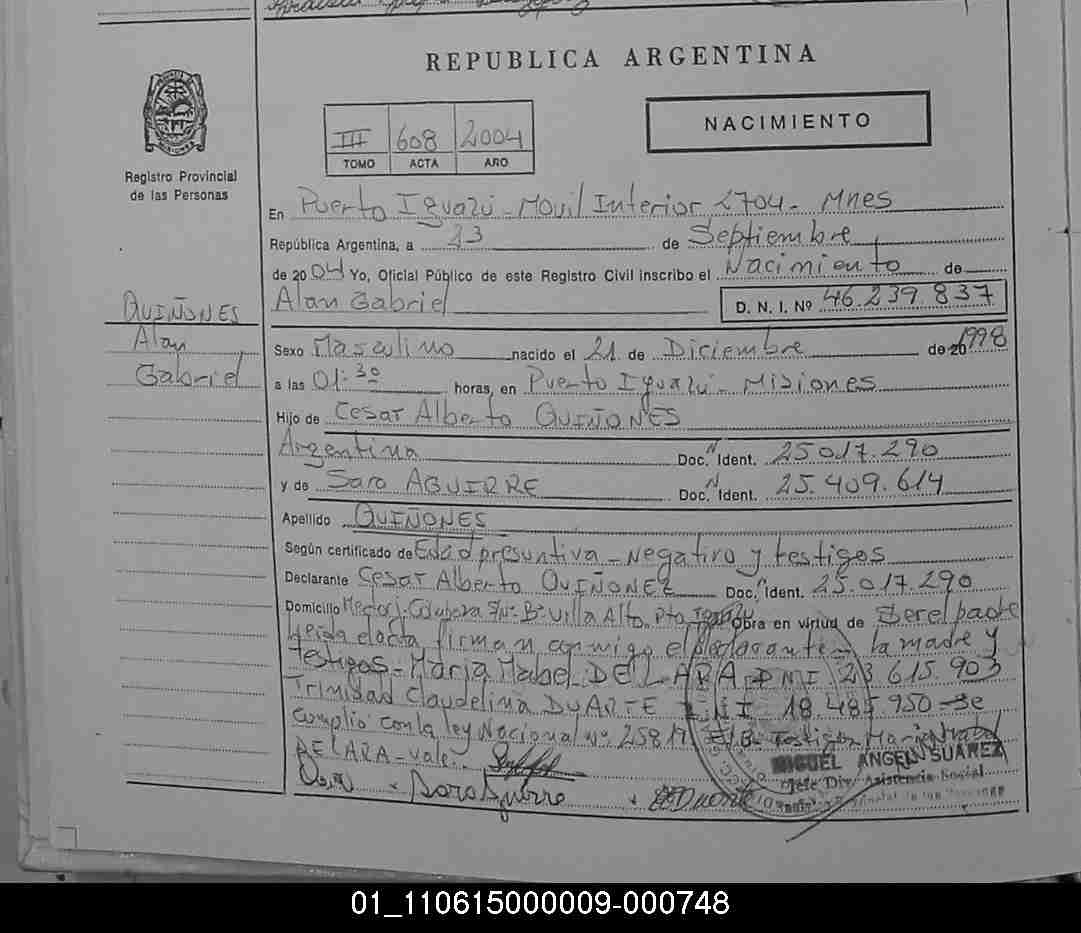 REPUBLICA ARGENTINA
III 608 2004
TOMO ACTA AÑO
NACIMIENTO
Registro Provincial
de las Personas
En Puerto Iguazú - Movil Interior 2704 - Mnes
República Argentina, a 23 de Septiembre
de 2004 Yo, Oficial Público de este Registro Civil inscribo el Nacimiento de
Alan Gabriel D. N. I. Nº 46.239.837
QUIÑONES
Alan
Gabriel
Sexo Masculino nacido el 21 de Diciembre de 20 1998
a las 01:30 horas, en Puerto Iguazú - Misiones
Hijo de Cesar Alberto QUIÑONES
Argentina Doc. N Ident. 25.017.290
y de Sara AGUIRRE Doc. N Ident. 25.409.614
Apellido QUIÑONES
Según certificado de Edad presuntiva - Negativo y testigos
Declarante Cesar Alberto QUIÑONEZ Doc. N Ident. 25.017.290
Domicilio S/Nº Bº Villa Alta. Pto Iguazu Obra en virtud de Ser el padre
Leida el acta firman conmigo el declarante - la madre y
testigos - Maria Mabel DE LARA DNI 23.615.903
Trinidad Claudelina DUARTE DNI 18.485.950 - Se
cumplio con la ley Nacional Nº 25819 Testigo Maria Mabel
DE LARA - vale.
MIGUEL ANGEL SUAREZ
Jefe Div. Asistencia Social
Sara Aguirre
01_110615000009-000748